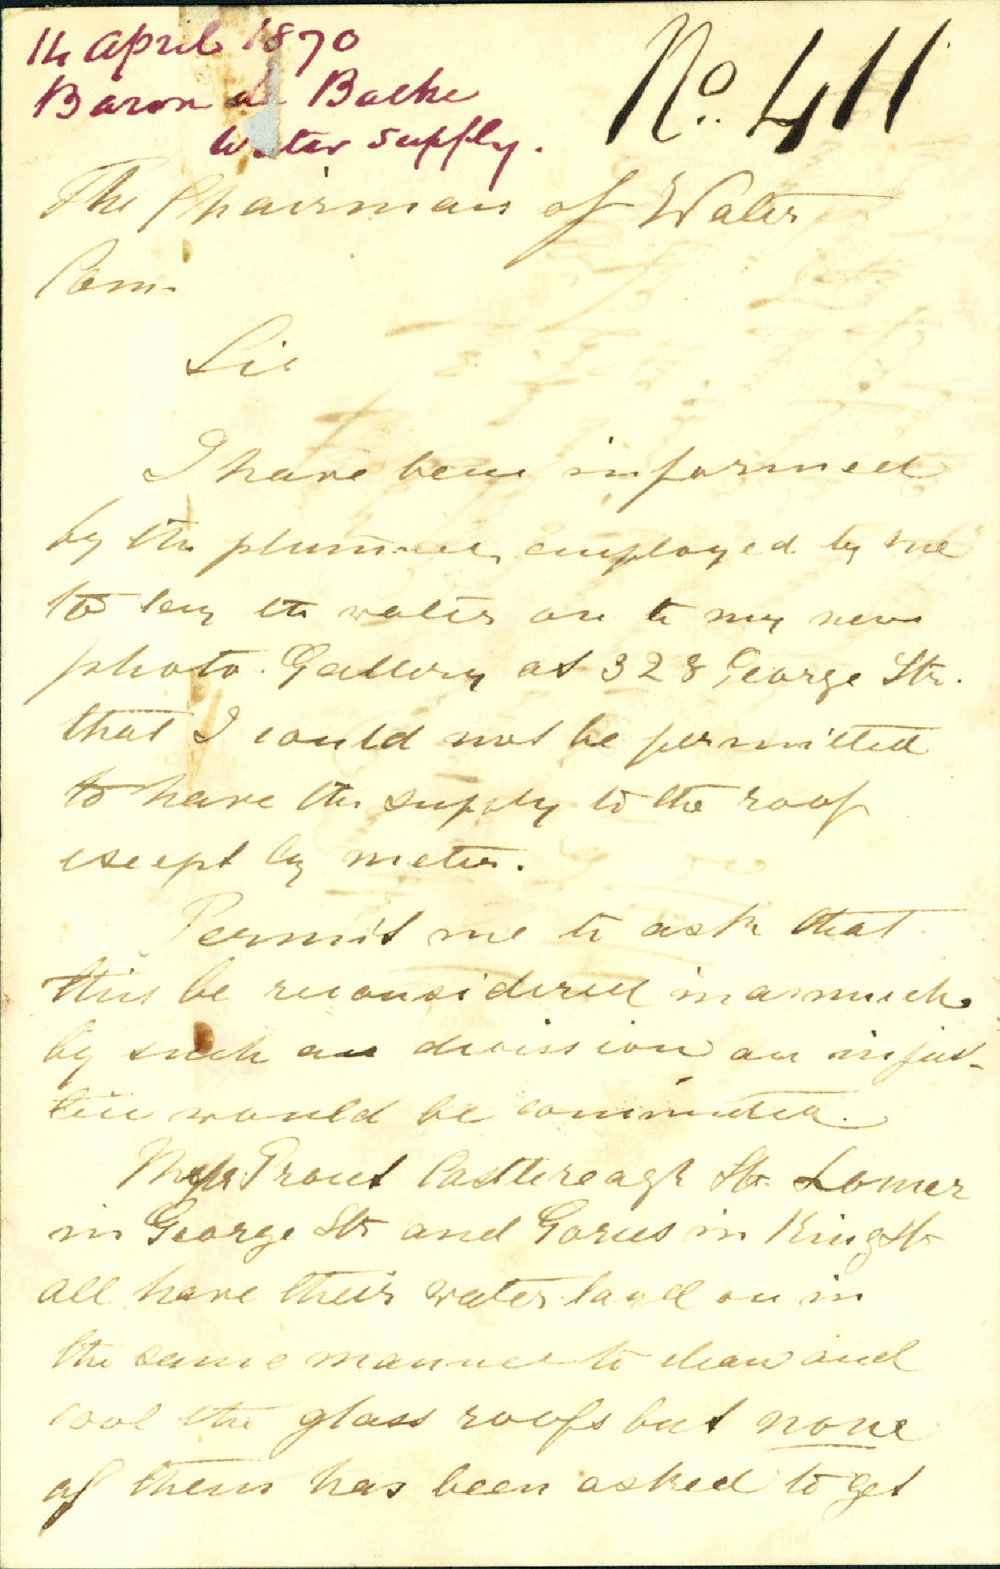 14 April 1870
No. 411
Baron de Balke
Water Supply.
The Chairman of Water
Com.
Sir
I have been informed
by the plummer employed by me
to lay the water on to my new
photo. Gallery at 328 George Str.
that I could not be permitted
to have the supply to the roof
except by meter.
Permit me to ask that
this be reconsidered inasmuch
by such an division an injus-
tice would be committed.
Prout Castlereagh St. Lomer
in George Str and Gorus in King St
all have their water laid on in
the same manner to clean and
cool the glass roofs but none
of them has been asked to get